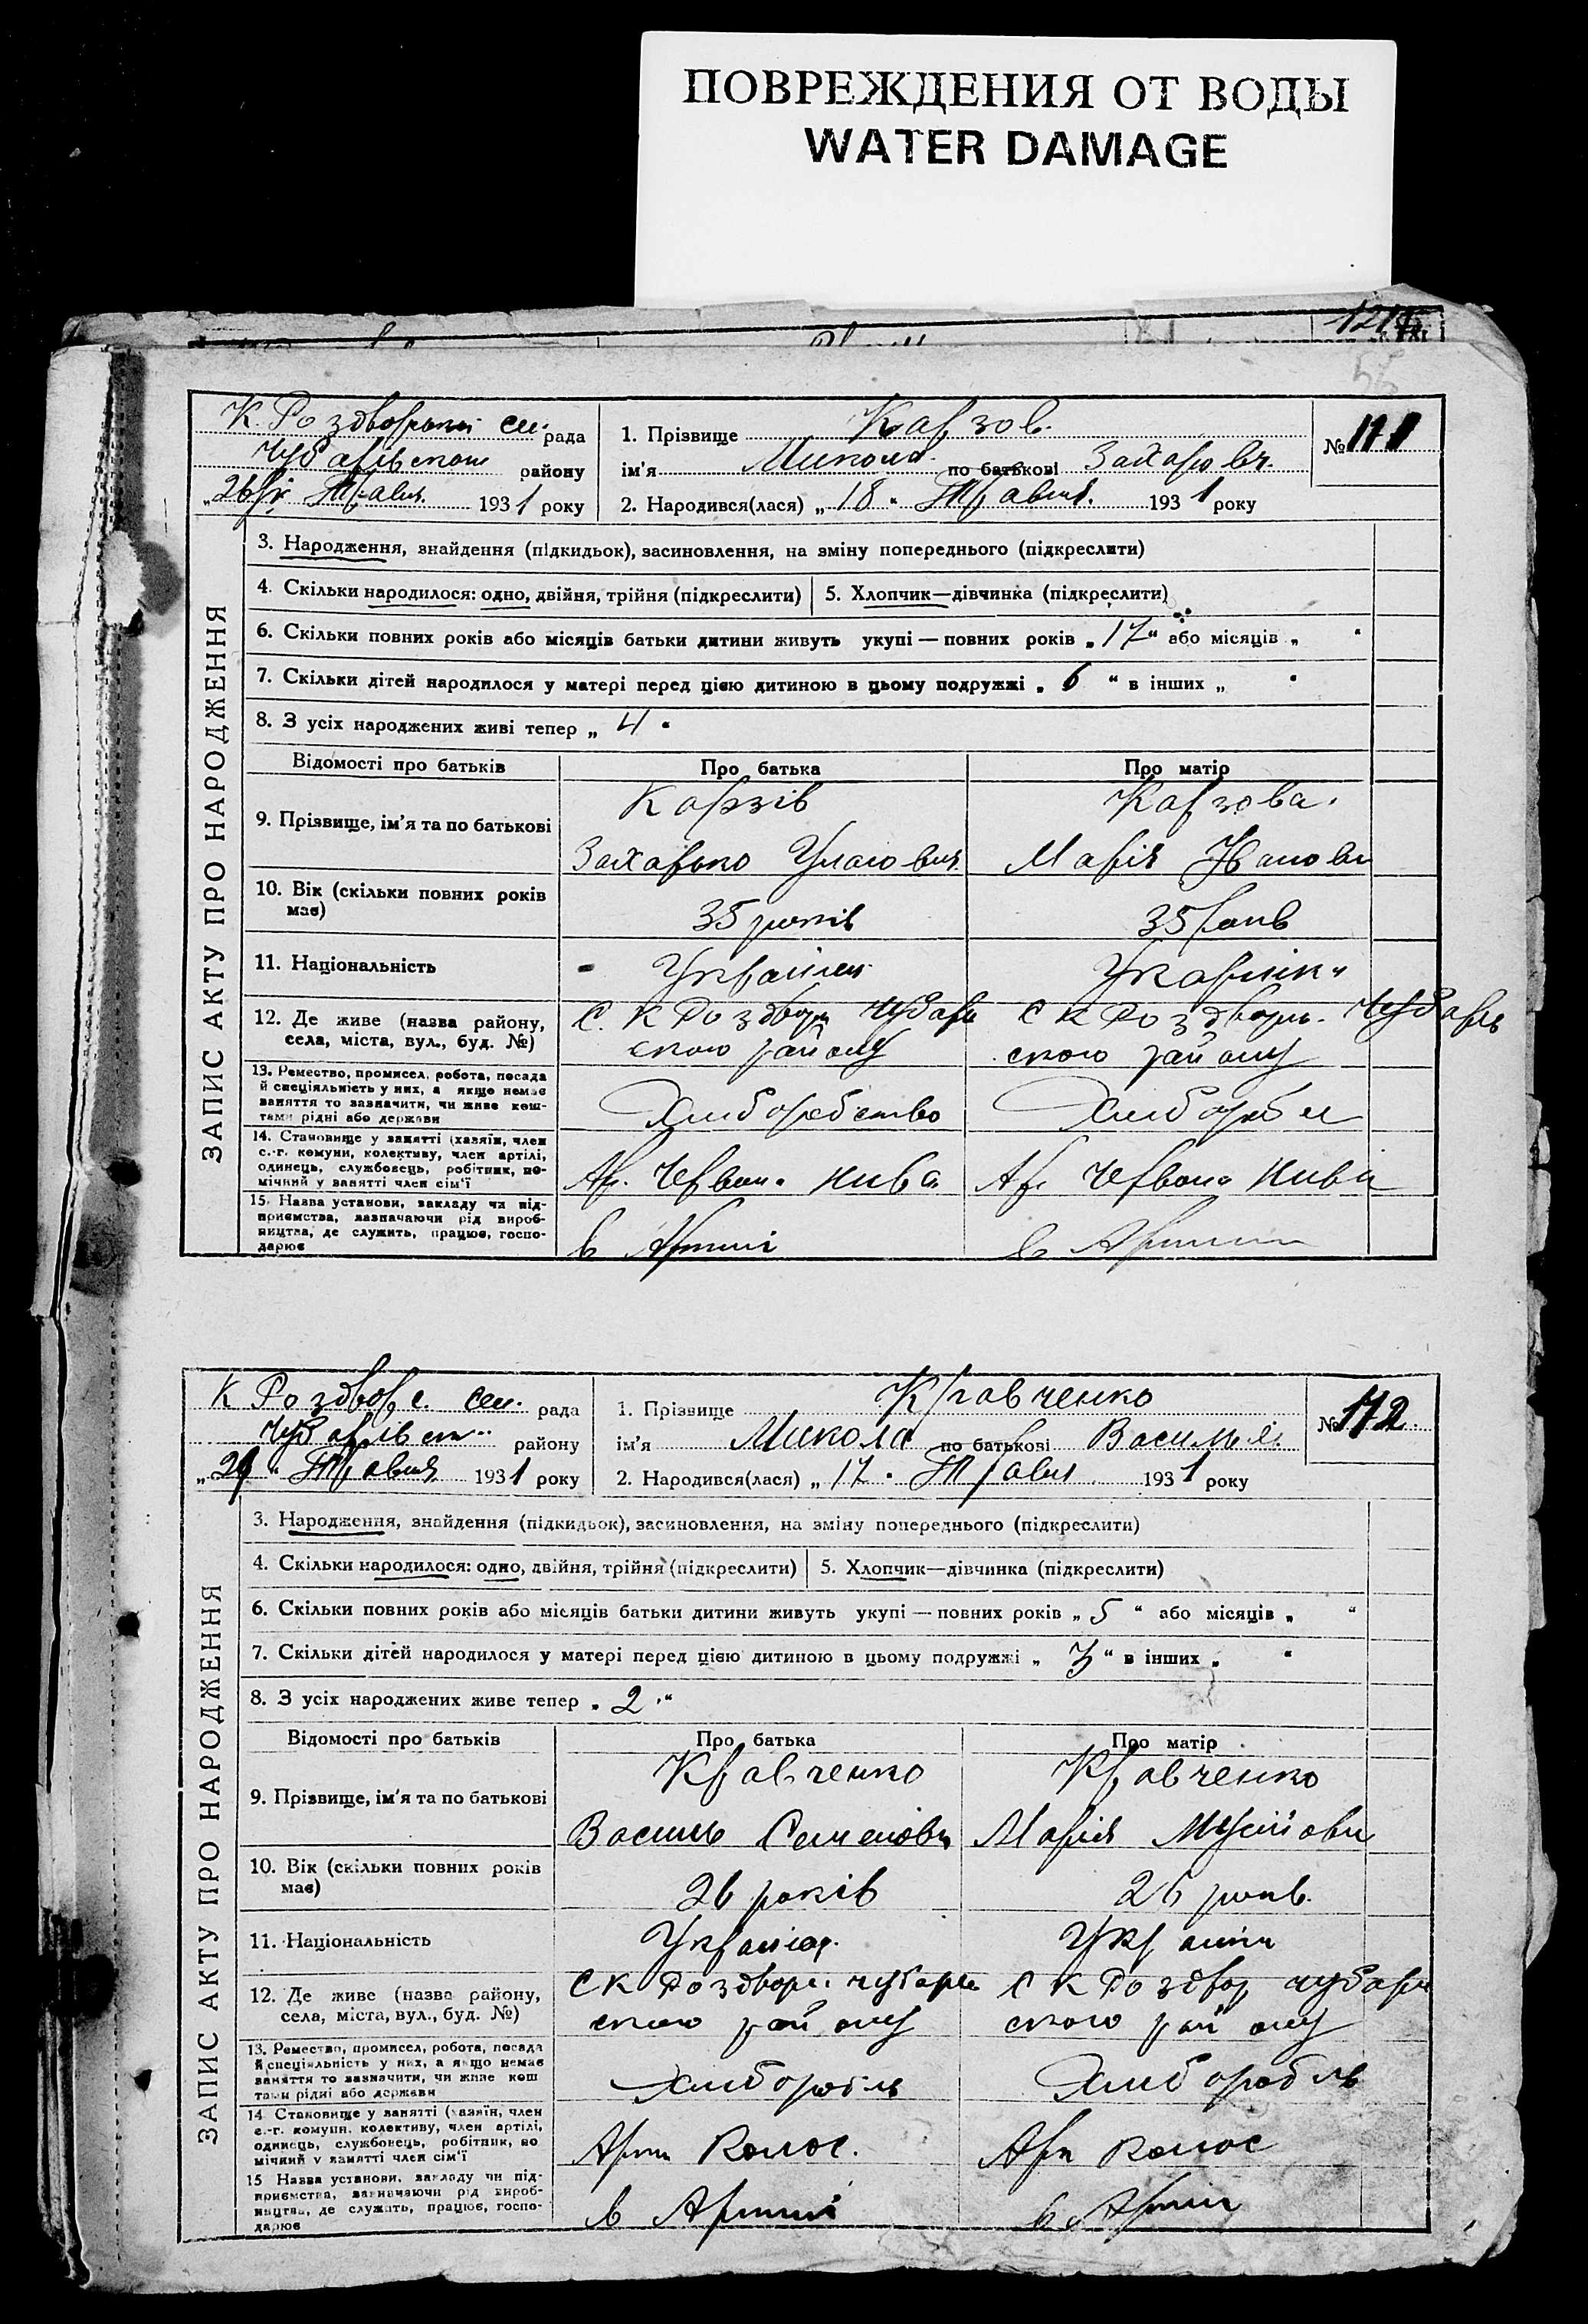 ПОВРЕЖДЕНИЯ ОТ ВОДЫ
WATER DAMAGE
К. Роздворська сел. рада
Чубарівского району
„26" Травня 1931 року
1. Прізвище Карзов.
ім'я Микола по батькові Захарович.
2. Народився(лася) „18" Травня. 1931 року
№ 171
ЗАПИС АКТУ ПРО НАРОДЖЕННЯ
3. Народження, знайдення (підкидьок), засиновлення, на зміну попереднього (підкреслити)
4. Скільки народилося: одно, двійня, трійня (підкреслити)
5. Хлопчик—дівчинка (підкреслити)
6. Скільки повних років або місяців батьки дитини живуть укупі — повних років „17" або місяців „ "
7. Скільки дітей народилося у матері перед цією дитиною в цьому подружжі „ 6 " в інших „ "
8. З усіх народжених живі тепер „ 4 "
Відомості про батьків
Про батька
Про матір
9. Прізвище, ім'я та по батькові
Карзів
Захарько Уласович
Карзова.
Марія Іванови
10. Вік (скільки повних років має)
35 років
35 років
11. Національність
Українец
Українка
12. Де живе (назва району, села, міста, вул., буд. №)
С. К Роздвор Чубарів
ского району
С К Роздвор. Чубарів
ского району
13. Ремество, промисел, робота, посада
й спеціяльність у них, а якщо немає
заняття то зазначити, чи живе кош-
тами рідні або держави
Хліборобство
Хлібороби
14. Становище у занятті (хазяїн, член
с.-г. комуни, колективу, член артілі,
одинець, службовець, робітник, по-
мічний у занятті член сім'ї
Ар. Червон. Нива
Ар. Червона Нива
15. Назва установи, закладу чи під-
приємства, зазначаючи рід вироб-
ництва, де служить, працює, госпо-
дарює
в Артілі
в Артілі
К Роздворс. сел. рада
Чубарівск. району
„29" Травня 1931 року
1. Прізвище Кравченко
ім'я Микола по батькові Васильв.
2. Народився(лася) „17" Травня 1931 року
№ 172
ЗАПИС АКТУ ПРО НАРОДЖЕННЯ
3. Народження, знайдення (підкидьок), засиновлення, на зміну попереднього (підкреслити)
4. Скільки народилося: одно, двійня, трійня (підкреслити)
5. Хлопчик—дівчинка (підкреслити)
6. Скільки повних років або місяців батьки дитини живуть укупі — повних років „ 5 " або місяців „ "
7. Скільки дітей народилося у матері перед цією дитиною в цьому подружжі „ 3 " в інших „ "
8. З усіх народжених живе тепер „ 2 "
Відомості про батьків
Про батька
Про матір
9. Прізвище, ім'я та по батькові
Кравченко
Василь Семенович
Кравченко
Марія Мусійовн
10. Вік (скільки повних років має)
26 років
26 років.
11. Національність
Українец.
Українк
12. Де живе (назва району, села, міста, вул., буд. №)
С К Роздворс. Чубарів
ского району
С К Роздвор Чубарів
ского району
13. Ремество, промисел, робота, посада
й спеціяльність у них, а якщо немає
заняття то зазначити, чи живе кош
тами рідні або держави
Хлібороб ль
Хлібороб ль
14. Становище у занятті (хазяїн, член
с.-г. комуни, колективу, член артілі,
одинець, службовець, робітник, по
мічний у занятті член сім'ї
Арт Колос.
Арт Колос
15 Назва установи, закладу чи під-
приємства, зазначаючи рід вироб-
ництва, де служить, працює, госпо-
дарює
в Артілі
в Артілі